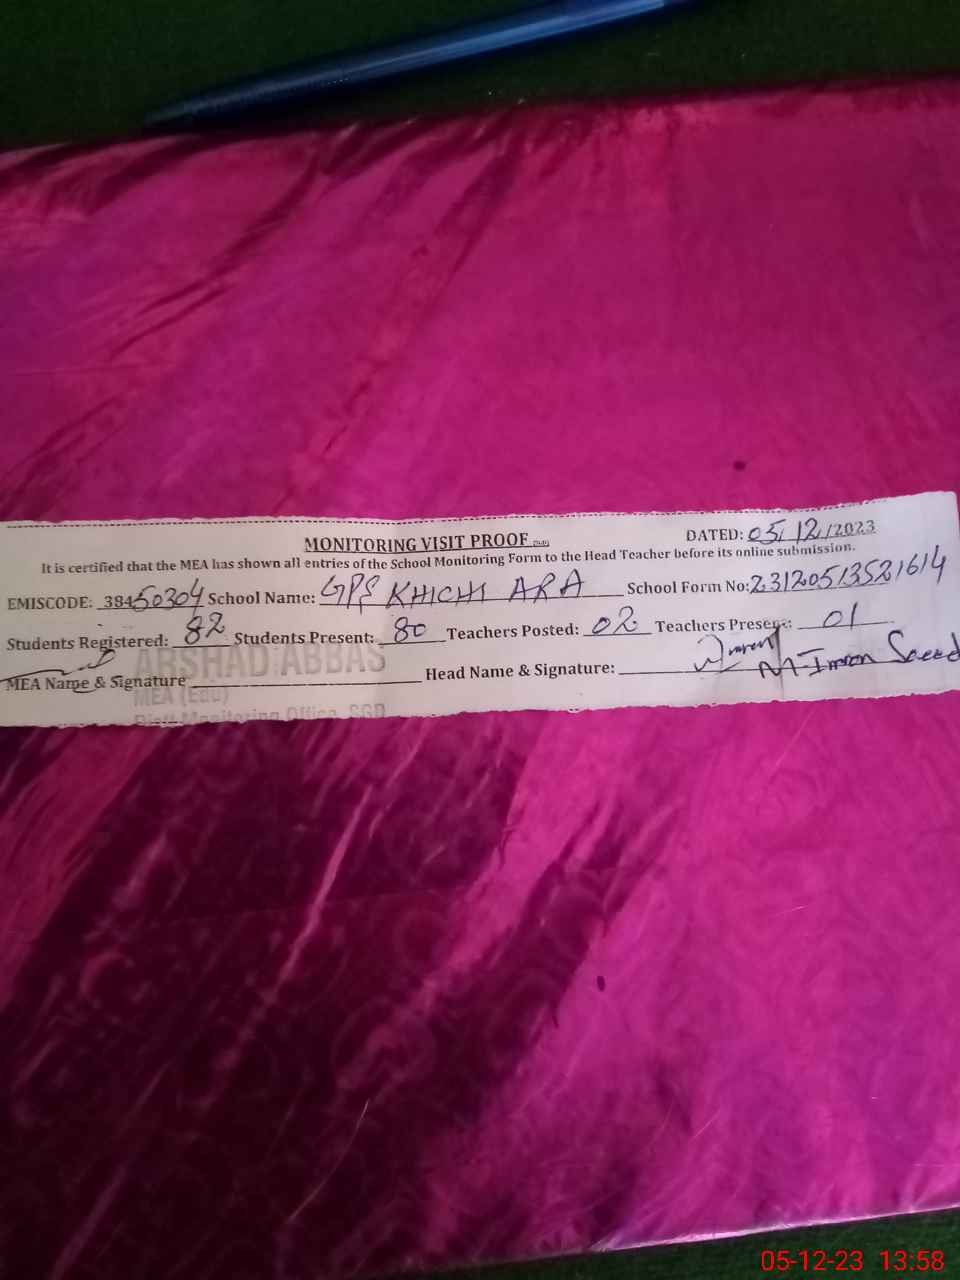 MONITORING VISIT PROOF
DATED: 05/12/2023
It is certified that the MEA has shown all entries of the School Monitoring Form to the Head Teacher before its online submission.
EMISCODE: 38450304 School Name: GPS KHICHI ARA School Form No: 23120513521614
Students Registered: 82 Students Present: 80 Teachers Posted: 02 Teachers Present: 01
ARSHAD ABBAS
MEA Name & Signature Head Name & Signature: M-Imran Saeed
MEA (Edu)
Distt Monitoring Office, SGD
05-12-23 13:58